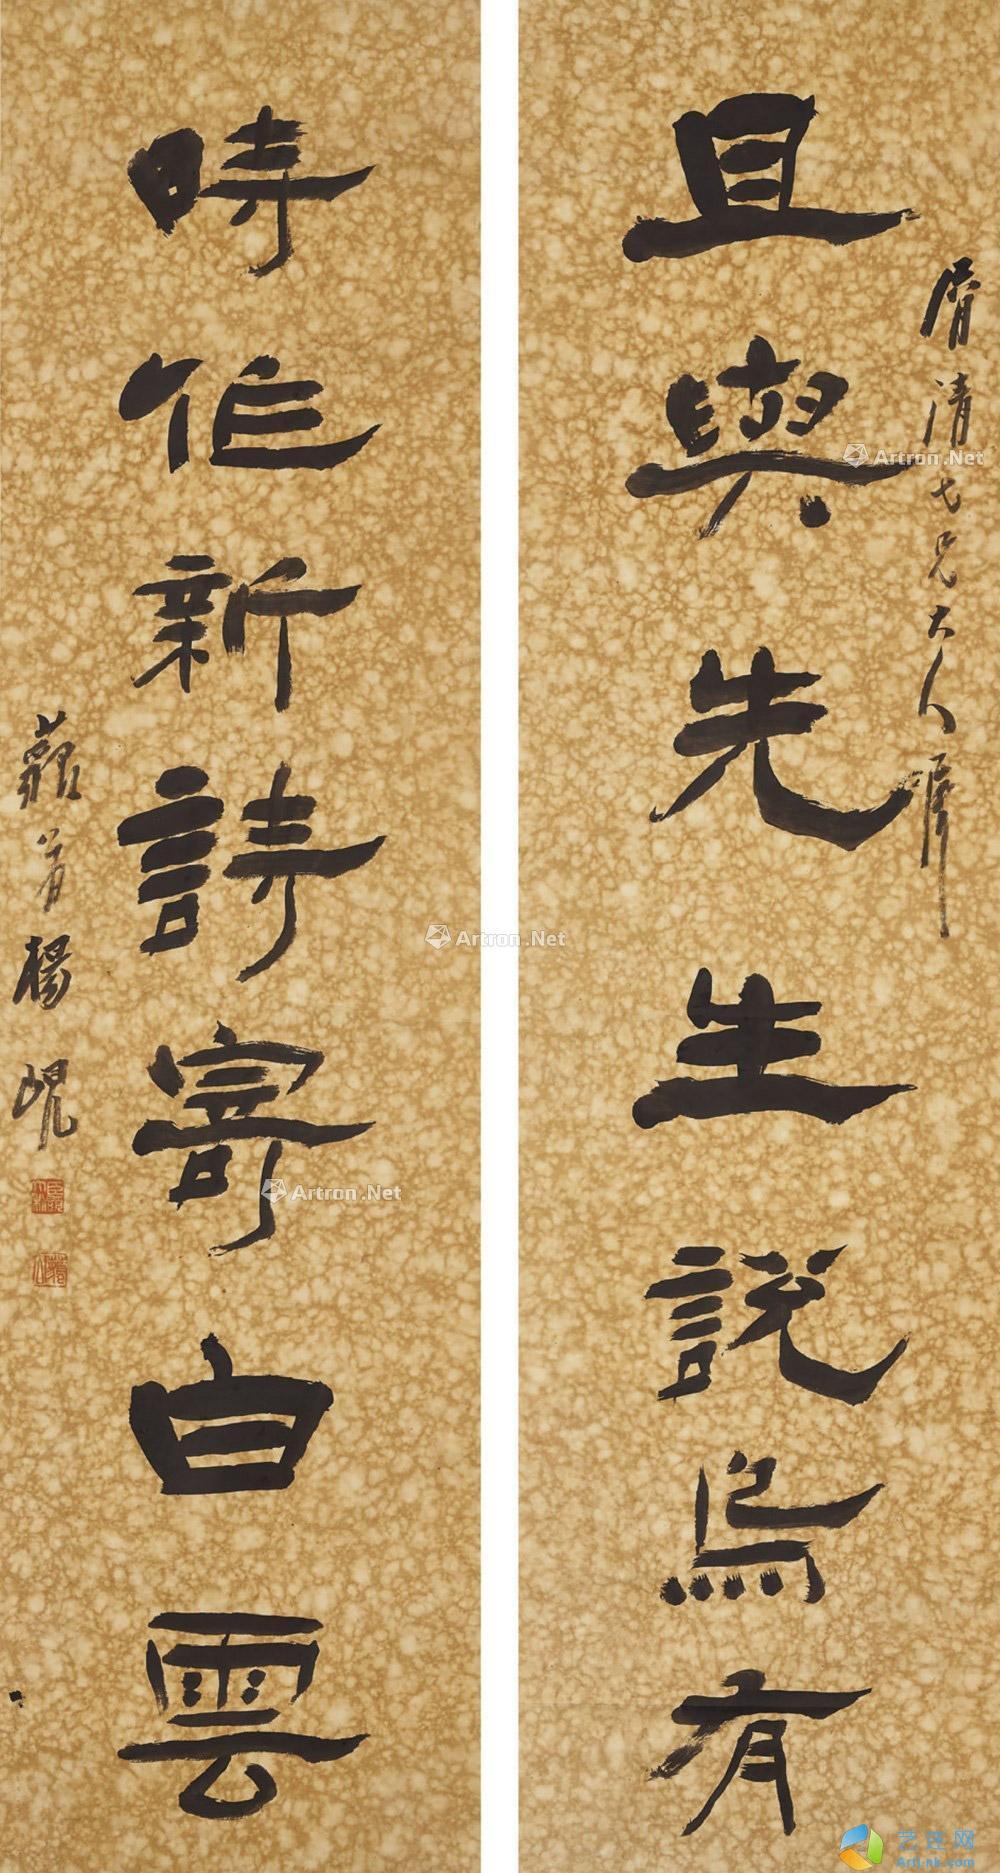 且與先生說烏有
時作新詩寄白雲
清七兄大人屬
藐翁楊峴
Artron.Net
Artron.Net
Artron.Net
艺连网
Artlnk.com